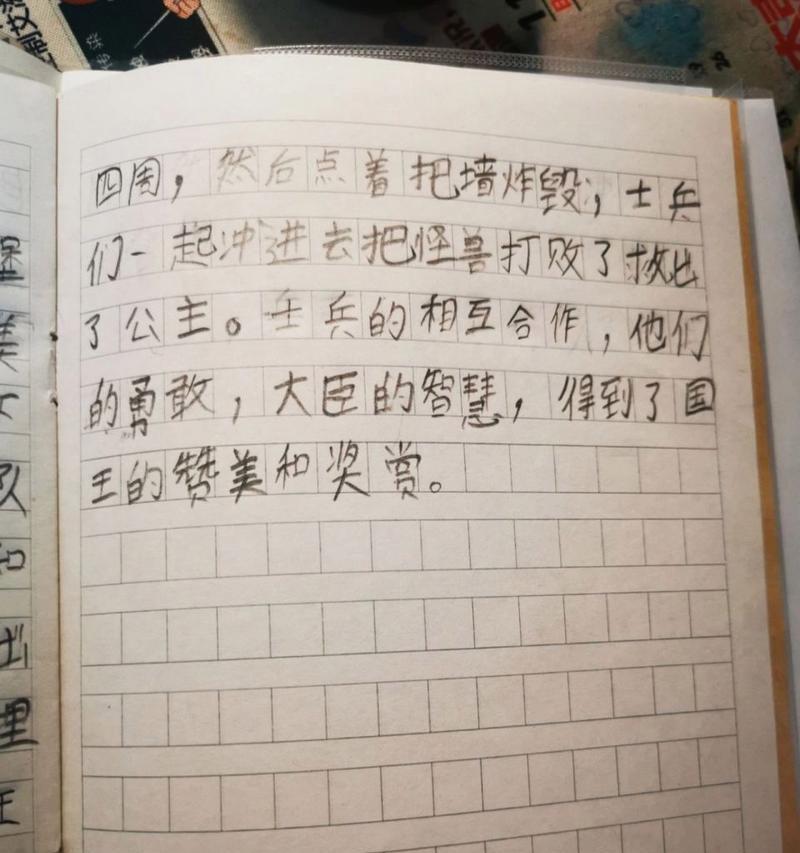 四周，然后点着把墙炸毁，士兵
们一起冲进去把怪兽打败了救出
了公主。士兵的相互合作，他们
的勇敢，大臣的智慧，得到了国
王的赞美和奖赏。
堡
美
队
和
出
里
王